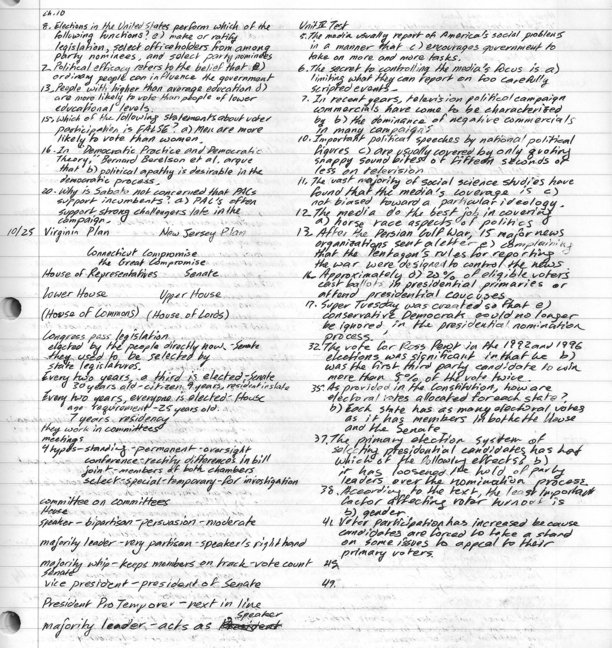 ch.10
8. Elections in the United States perform which of the
following functions? e) make or ratify
legislation, select officeholders from among
party nominees, and select party nominees
2. Political efficacy refers to the belief that e)
ordinary people can influence the government
13. People with higher than average education d)
are more likely to vote than people of lower
educational levels.
15. Which of the following statements about voter
participation is FALSE? a) Men are more
likely to vote than women.
16. In "Democratic Practice and Democratic
Theory," Bernard Berelson et al. argue
that b) political apathy is desirable in the
democratic process.
20. Why is Sabato not concerned that PACs
support incumbents? a) PAC's often
support strong challengers late in the
campaign.
10/25 Virginia Plan New Jersey Plan
Connecticut Compromise
the Great Compromise
House of Representatives Senate
Lower House Upper House
(House of Commons) (House of Lords)
Congress pass legislation
elected by the people directly now - Senate
they used to be selected by
state legislatures.
Every two years, a third is elected - Senate
30 years old - citizen 9 years, resident in state
Every two years, everyone is elected - House
age requirement - 25 years old.
7 years residency
they work in committees
meetings
4 types - standing - permanent - oversight
conference - rectify differences in bill
joint - members of both chambers
select - special - temporary - for investigation
committee on committees
House
speaker - bipartisan - persuasion - moderate
majority leader - very partisan - speaker's right hand
majority whip - keeps members on track - vote count
Senate
vice president - president of Senate
President Pro Temporer - next in line
Speaker
majority leader - acts as President
Unit IV Test
5. The media usually report of America's social problems
in a manner that c) encourages government to
take on more and more tasks.
6. The secret to controlling the media's focus is a)
limiting what they can report on too carefully
scripted events.
7. In recent years, television political campaign
commercials have come to be characterized
by b) the dominance of negative commercials
in many campaigns
10. Important political speeches by national political
figures c) are usually covered by only quoting
snappy sound bites of fifteen seconds or
less on television
11. The vast majority of social science studies have
found that the media's coverage is c)
not biased toward a particular ideology.
12. The media do the best job in covering
a) horse race aspects of politics
13. After the Persian Gulf War, 15 major news
organizations sent a letter e) complaining
that the Pentagon's rules for reporting
the war were designed to control the news
16. Approximately d) 20% of eligible voters
cast ballots in presidential primaries or
attend presidential caucuses
17. Super Tuesday was created so that e)
conservative Democrats could no longer
be ignored in the presidential nomination
process.
32. The vote for Ross Perot in the 1992 and 1996
elections was significant in that he b)
was the first third party candidate to win
more than 5% of the vote twice.
35. As provided in the Constitution, how are
electoral votes allocated for each state?
b) Each state has as many electoral votes
as it has members in both the House
and the Senate
37. The primary election system of
selecting presidential candidates has had
which of the following effects? b)
it has loosened the hold of party
leaders over the nomination process.
38. According to the text, the least important
factor affecting voter turnout is
b) gender.
41. Voter participation has increased because
candidates are forced to take a stand
on some issues to appeal to their
primary voters.
49.